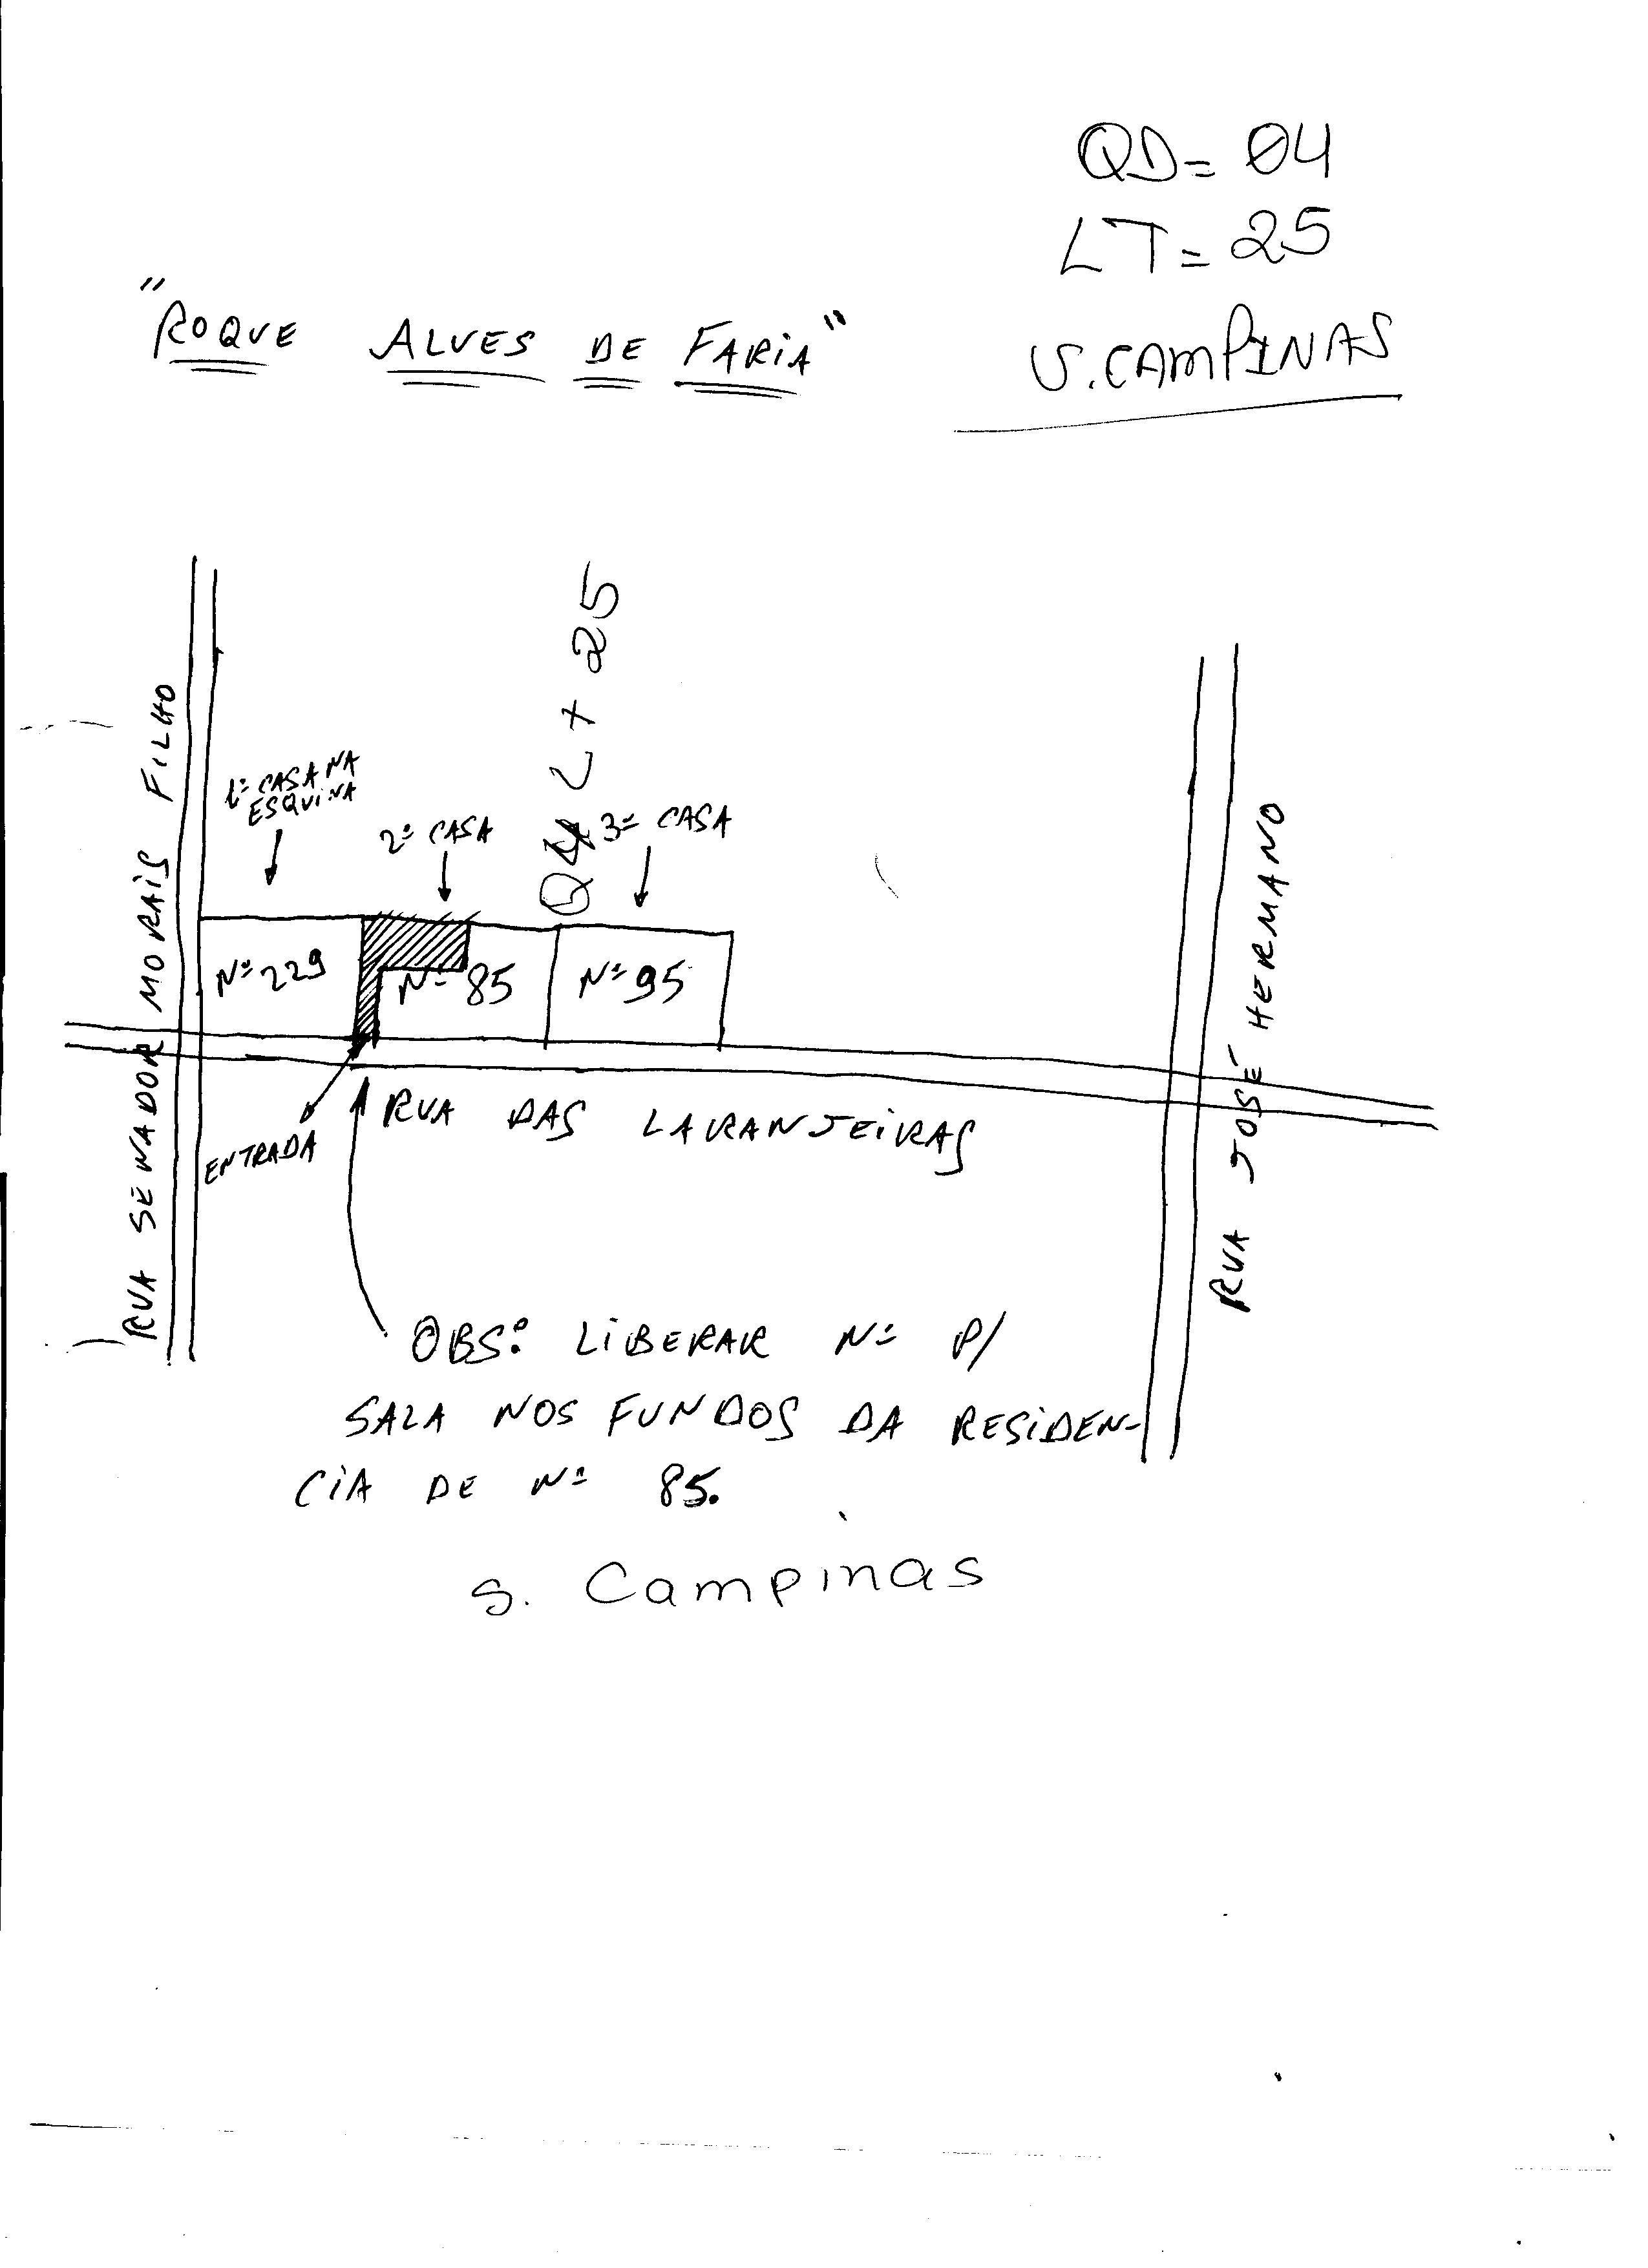 QD= 04
LT= 25
S. CAMPINAS
"ROQUE ALVES DE FARIA"
RUA SENADOR MORAIS FILHO
1ª CASA NA
ESQUINA
2ª CASA
Q4 Lt 25
3ª CASA
Nº 229
Nº 85
Nº 95
RUA JOSÉ HERMANO
ENTRADA
RUA DAS LARANJEIRAS
OBS: LIBERAR Nº P/
SALA NOS FUNDOS DA RESIDEN-
CIA DE Nº 85.
S. Campinas